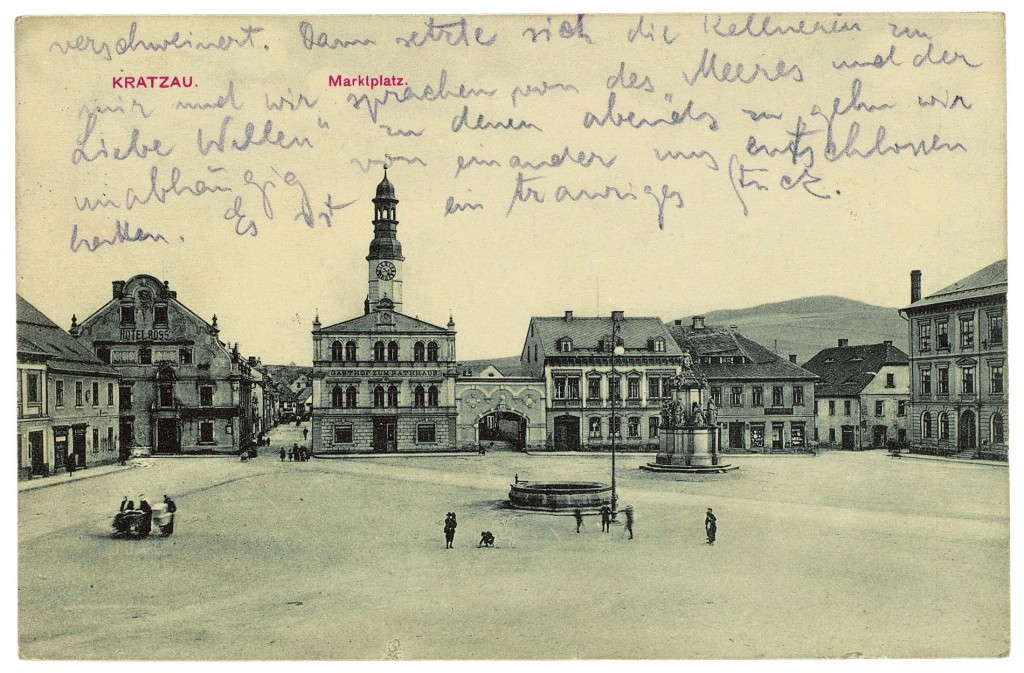 verschweinert. Dann setzte sich die Kellnerin zu
KRATZAU. Marktplatz.
mir und wir sprachen von des Meeres und der
Liebe Wellen" zu denen abends zu gehn wir
unabhängig von einander uns entschlossen
hatten. Es ist ein trauriges Stück.
HOTEL ROSS
GASTHOF ZUM RATHHAUS